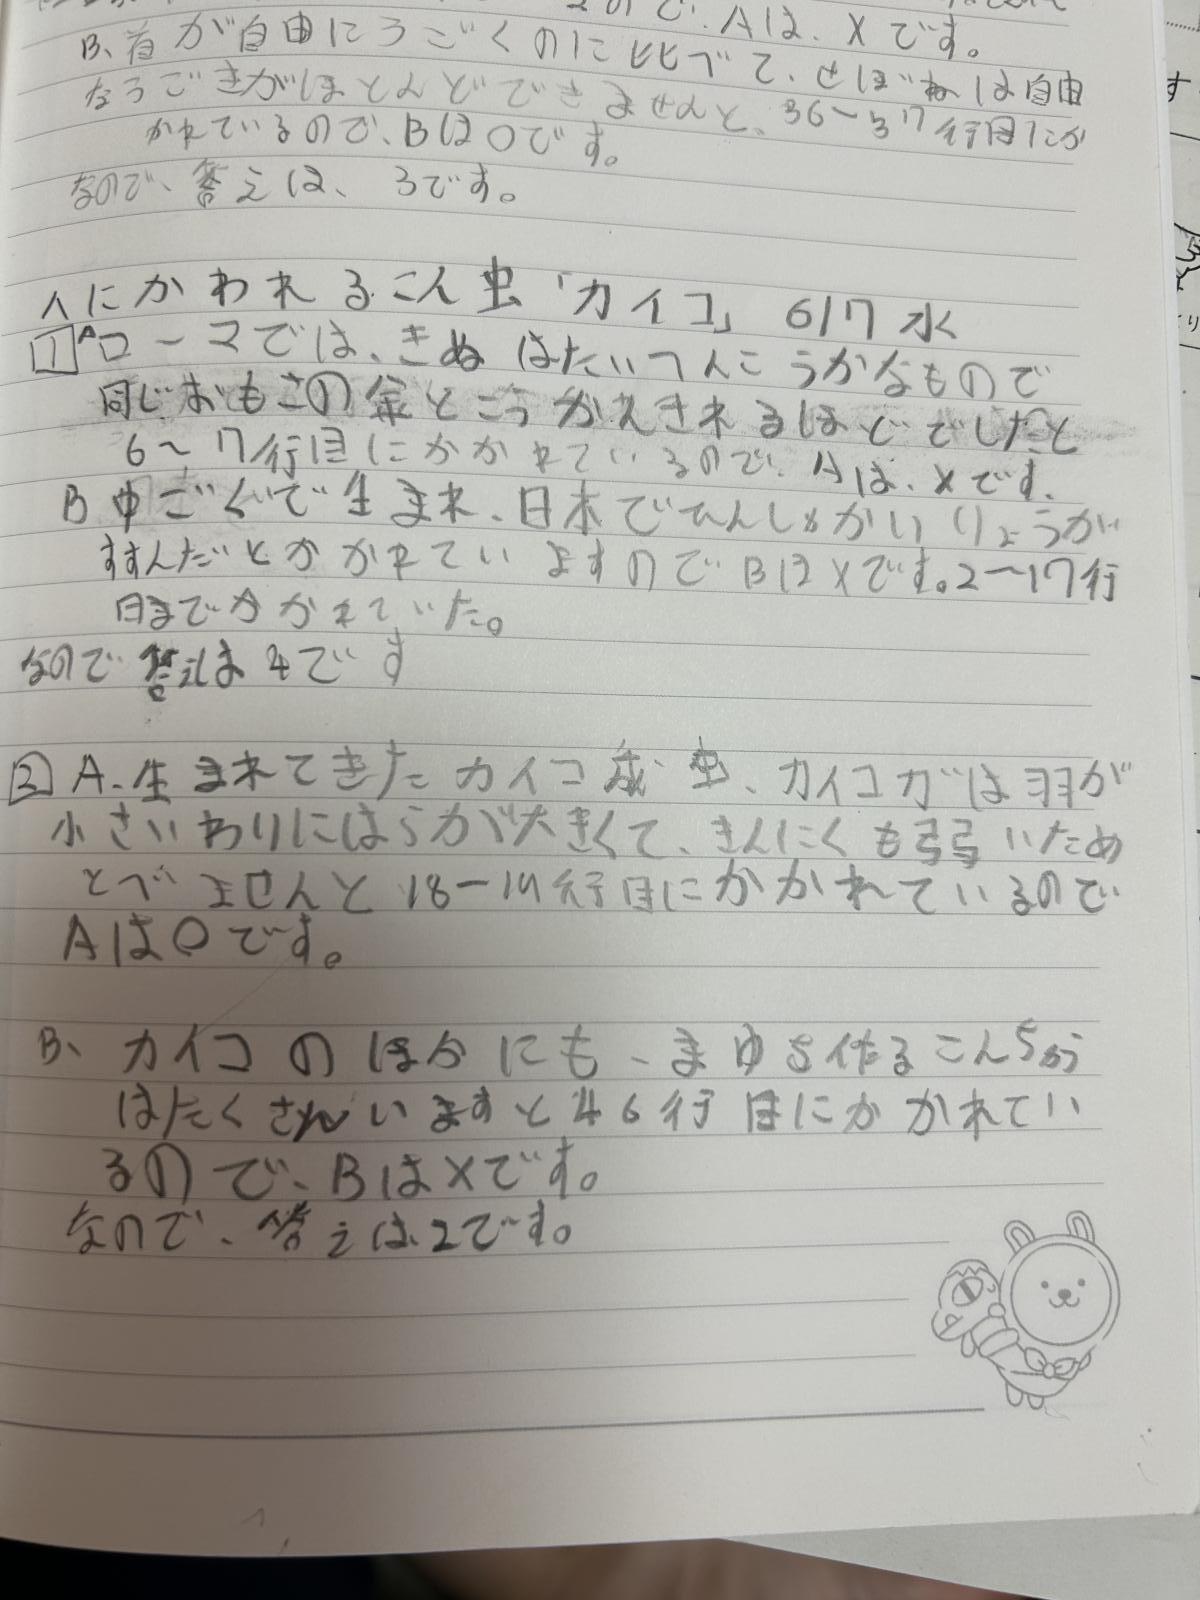 Aは、×です。
B、首が自由にうごくのに比べて、せぼねは自由
なうごきがほとんどできませんと、36〜37行目にか
かれているので、Bは○です。
なので、答えは、3です。
人にかわれるこん虫「カイコ」 6/17 水
1 A ローマでは、きぬはたいへんこうかなもので
同じおもさの金とこうかんされるほどでしたと
6〜7行目にかかれているので、Aは、×です、
B 中ごくで生まれ、日本でひんしゅかいりょうが
すすんだとかかれていますのでBは×です。2〜17行
目までかかれていた。
なので 答えは4です
2 A、生まれてきたカイコ成虫、カイコガは羽が
小さいわりにはらが大きくて、きんにくも弱いため
とべませんと18-19行目にかかれているので
Aは○です。
B、カイコのほかにも、まゆを作るこんちゅう
はたくさんいますと46行目にかかれてい
るので、Bは×です。
なので、答えは、2です。